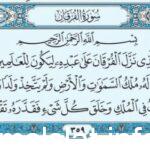 سُورَةُ الفُرْقَانِ
بِسْمِ اللَّهِ الرَّحْمَٰنِ الرَّحِيمِ
نَزَّلَ الْفُرْقَانَ عَلَىٰ عَبْدِهِ لِيَكُونَ لِلْعَالَمِينَ
لَهُ مُلْكُ السَّمَاوَاتِ وَالْأَرْضِ وَلَمْ يَتَّخِذْ وَلَدًا
فِي الْمُلْكِ وَخَلَقَ كُلَّ شَيْءٍ فَقَدَّرَهُ
٣٥٩